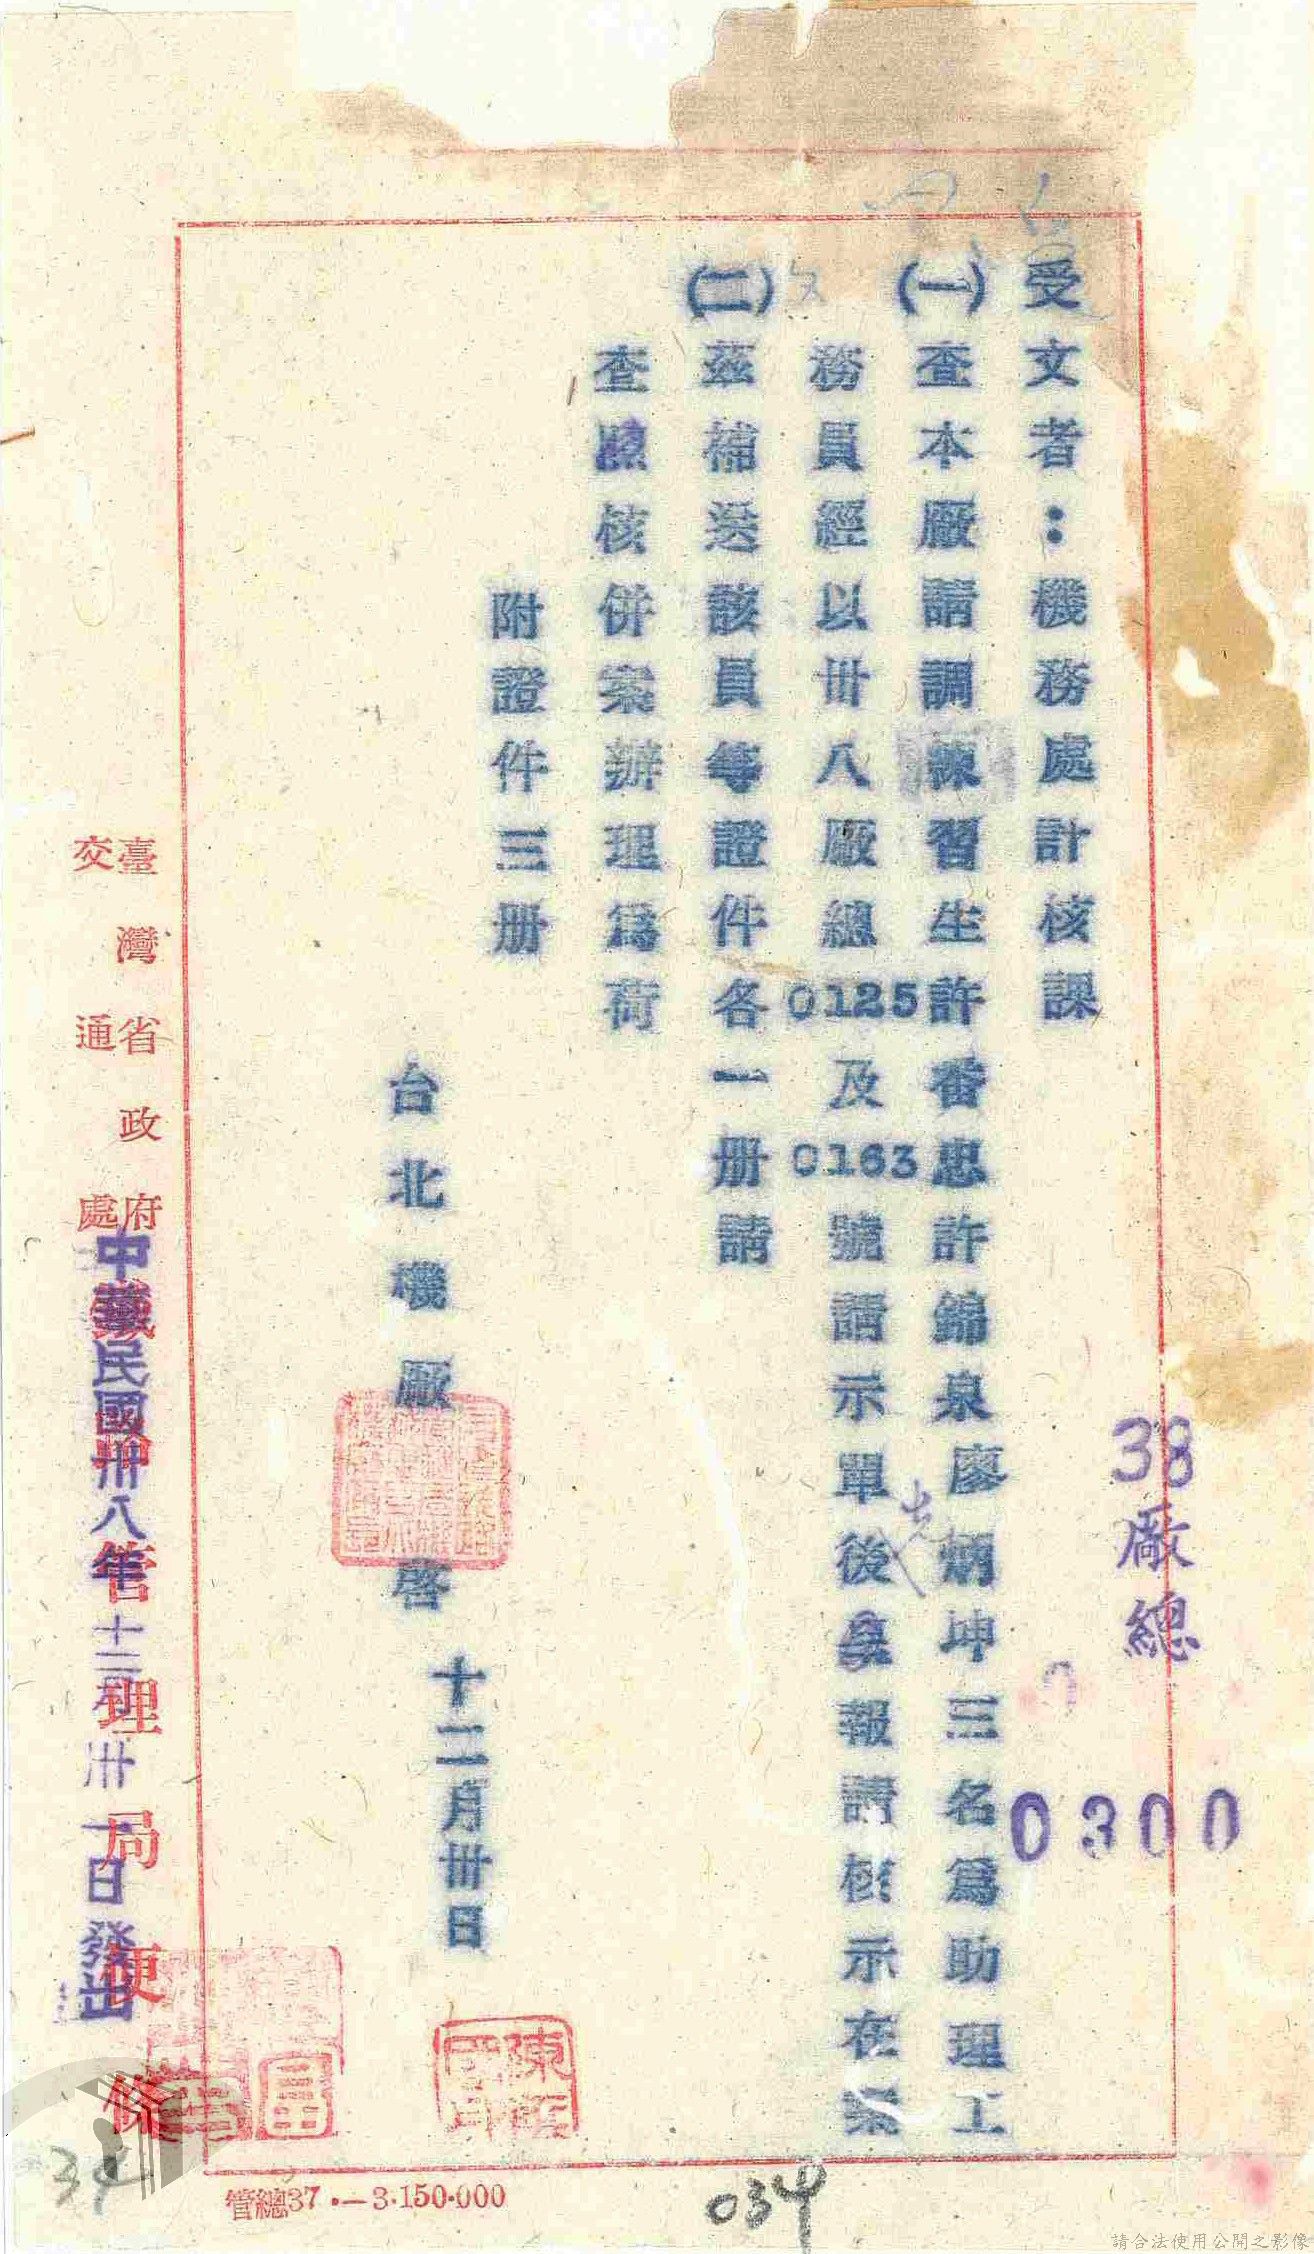 38廠總
0300
受文者：機務處計核課
(一)查本廠請調練習生許番忠許錦泉廖炳坤三名為助理工
務員經以卅八廠總0125及0163號請示單後奐報請核示在案
(二)茲補送該員等證件各一册請
查照核併案辦理為荷
附證件三册
台北機廠 啓 十二月卅日
臺灣省政府
交通處
鐵路管理局便條
中華民國卅八年十二月卅一日發出
管總37·—3·150·000
034
34
請合法使用公開之影像